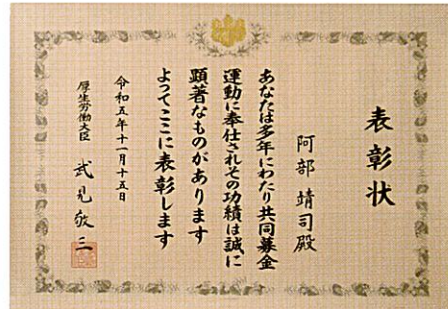 表彰状
阿部靖司殿
あなたは多年にわたり共同募金
運動に奉仕されその功績は誠に
顕著なものがあります
よってここに表彰します
令和五年十一月十五日
厚生労働大臣 武見敬三